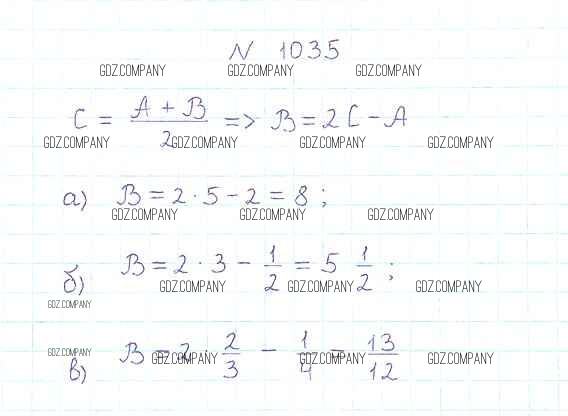 N 1035
GDZ.COMPANY GDZ.COMPANY GDZ.COMPANY
C = (A + B)/2 => B = 2C - A
GDZ.COMPANY GDZ.COMPANY GDZ.COMPANY GDZ.COMPANY
а) B = 2 · 5 - 2 = 8 ;
GDZ.COMPANY GDZ.COMPANY GDZ.COMPANY
б) B = 2 · 3 - 1/2 = 5 1/2 ;
GDZ.COMPANY GDZ.COMPANY GDZ.COMPANY GDZ.COMPANY
в) B = 2 · 2/3 - 1/4 = 13/12
GDZ.COMPANY GDZ.COMPANY GDZ.COMPANY GDZ.COMPANY